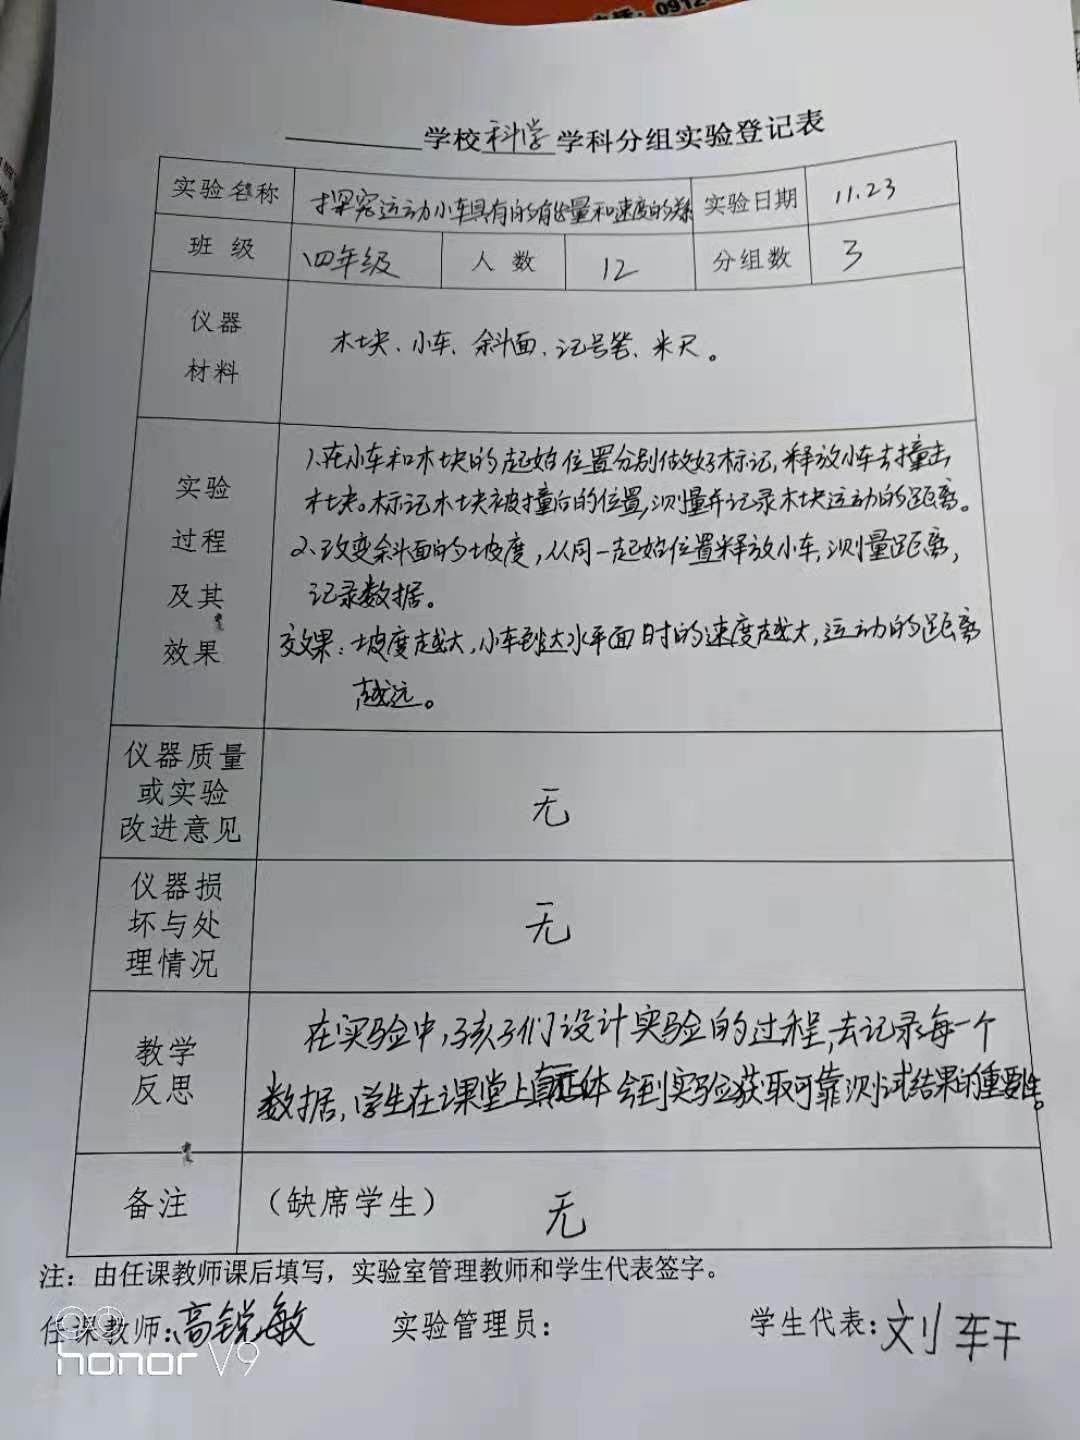 0912
学校科学学科分组实验登记表
实验名称 探究运动小车具有的能量和速度的关系 实验日期 11.23
班级 四年级 人数 12 分组数 3
仪器
材料
木块、小车、斜面、记号笔、米尺。
实验
过程
及其
效果
1.在小车和木块的起始位置分别做好标记,释放小车去撞击
木块。标记木块被撞后的位置,测量并记录木块运动的距离。
2、改变斜面的坡度,从同一起始位置释放小车,测量距离,
记录数据。
效果:坡度越大,小车到达水平面时的速度越大,运动的距离
越远。
仪器质量
或实验
改进意见
无
仪器损
坏与处
理情况
无
教学
反思
在实验中,孩子们设计实验的过程,去记录每一个
数据,学生在课堂上真正体会到实验获取可靠测试结果的重要性。
备注 (缺席学生) 无
注：由任课教师课后填写，实验室管理教师和学生代表签字。
任课教师:高锐敏 实验管理员： 学生代表:刘轩
honor V9